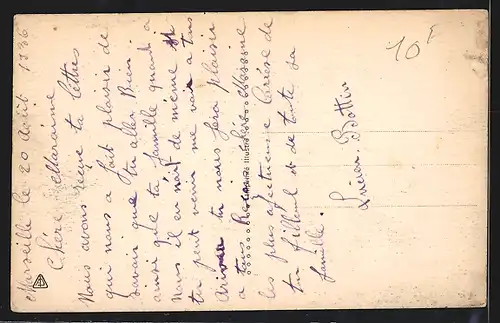 Marseille le 20 Août 1936
Chère Marraine
Nous avons reçue ta lettres
qui nous a fait plaisir de
savoir que tu aller Bien
ainsi que ta famille quand a
nous il en nait de même si
tu peut venir me voir a tous
Arrivée tu nous fera plaisir
a tous Reçoi chère Marraine
les plus afectueuse Carésse de
ton filleul et de toute sa
famille.
Lucien Bottin
10F